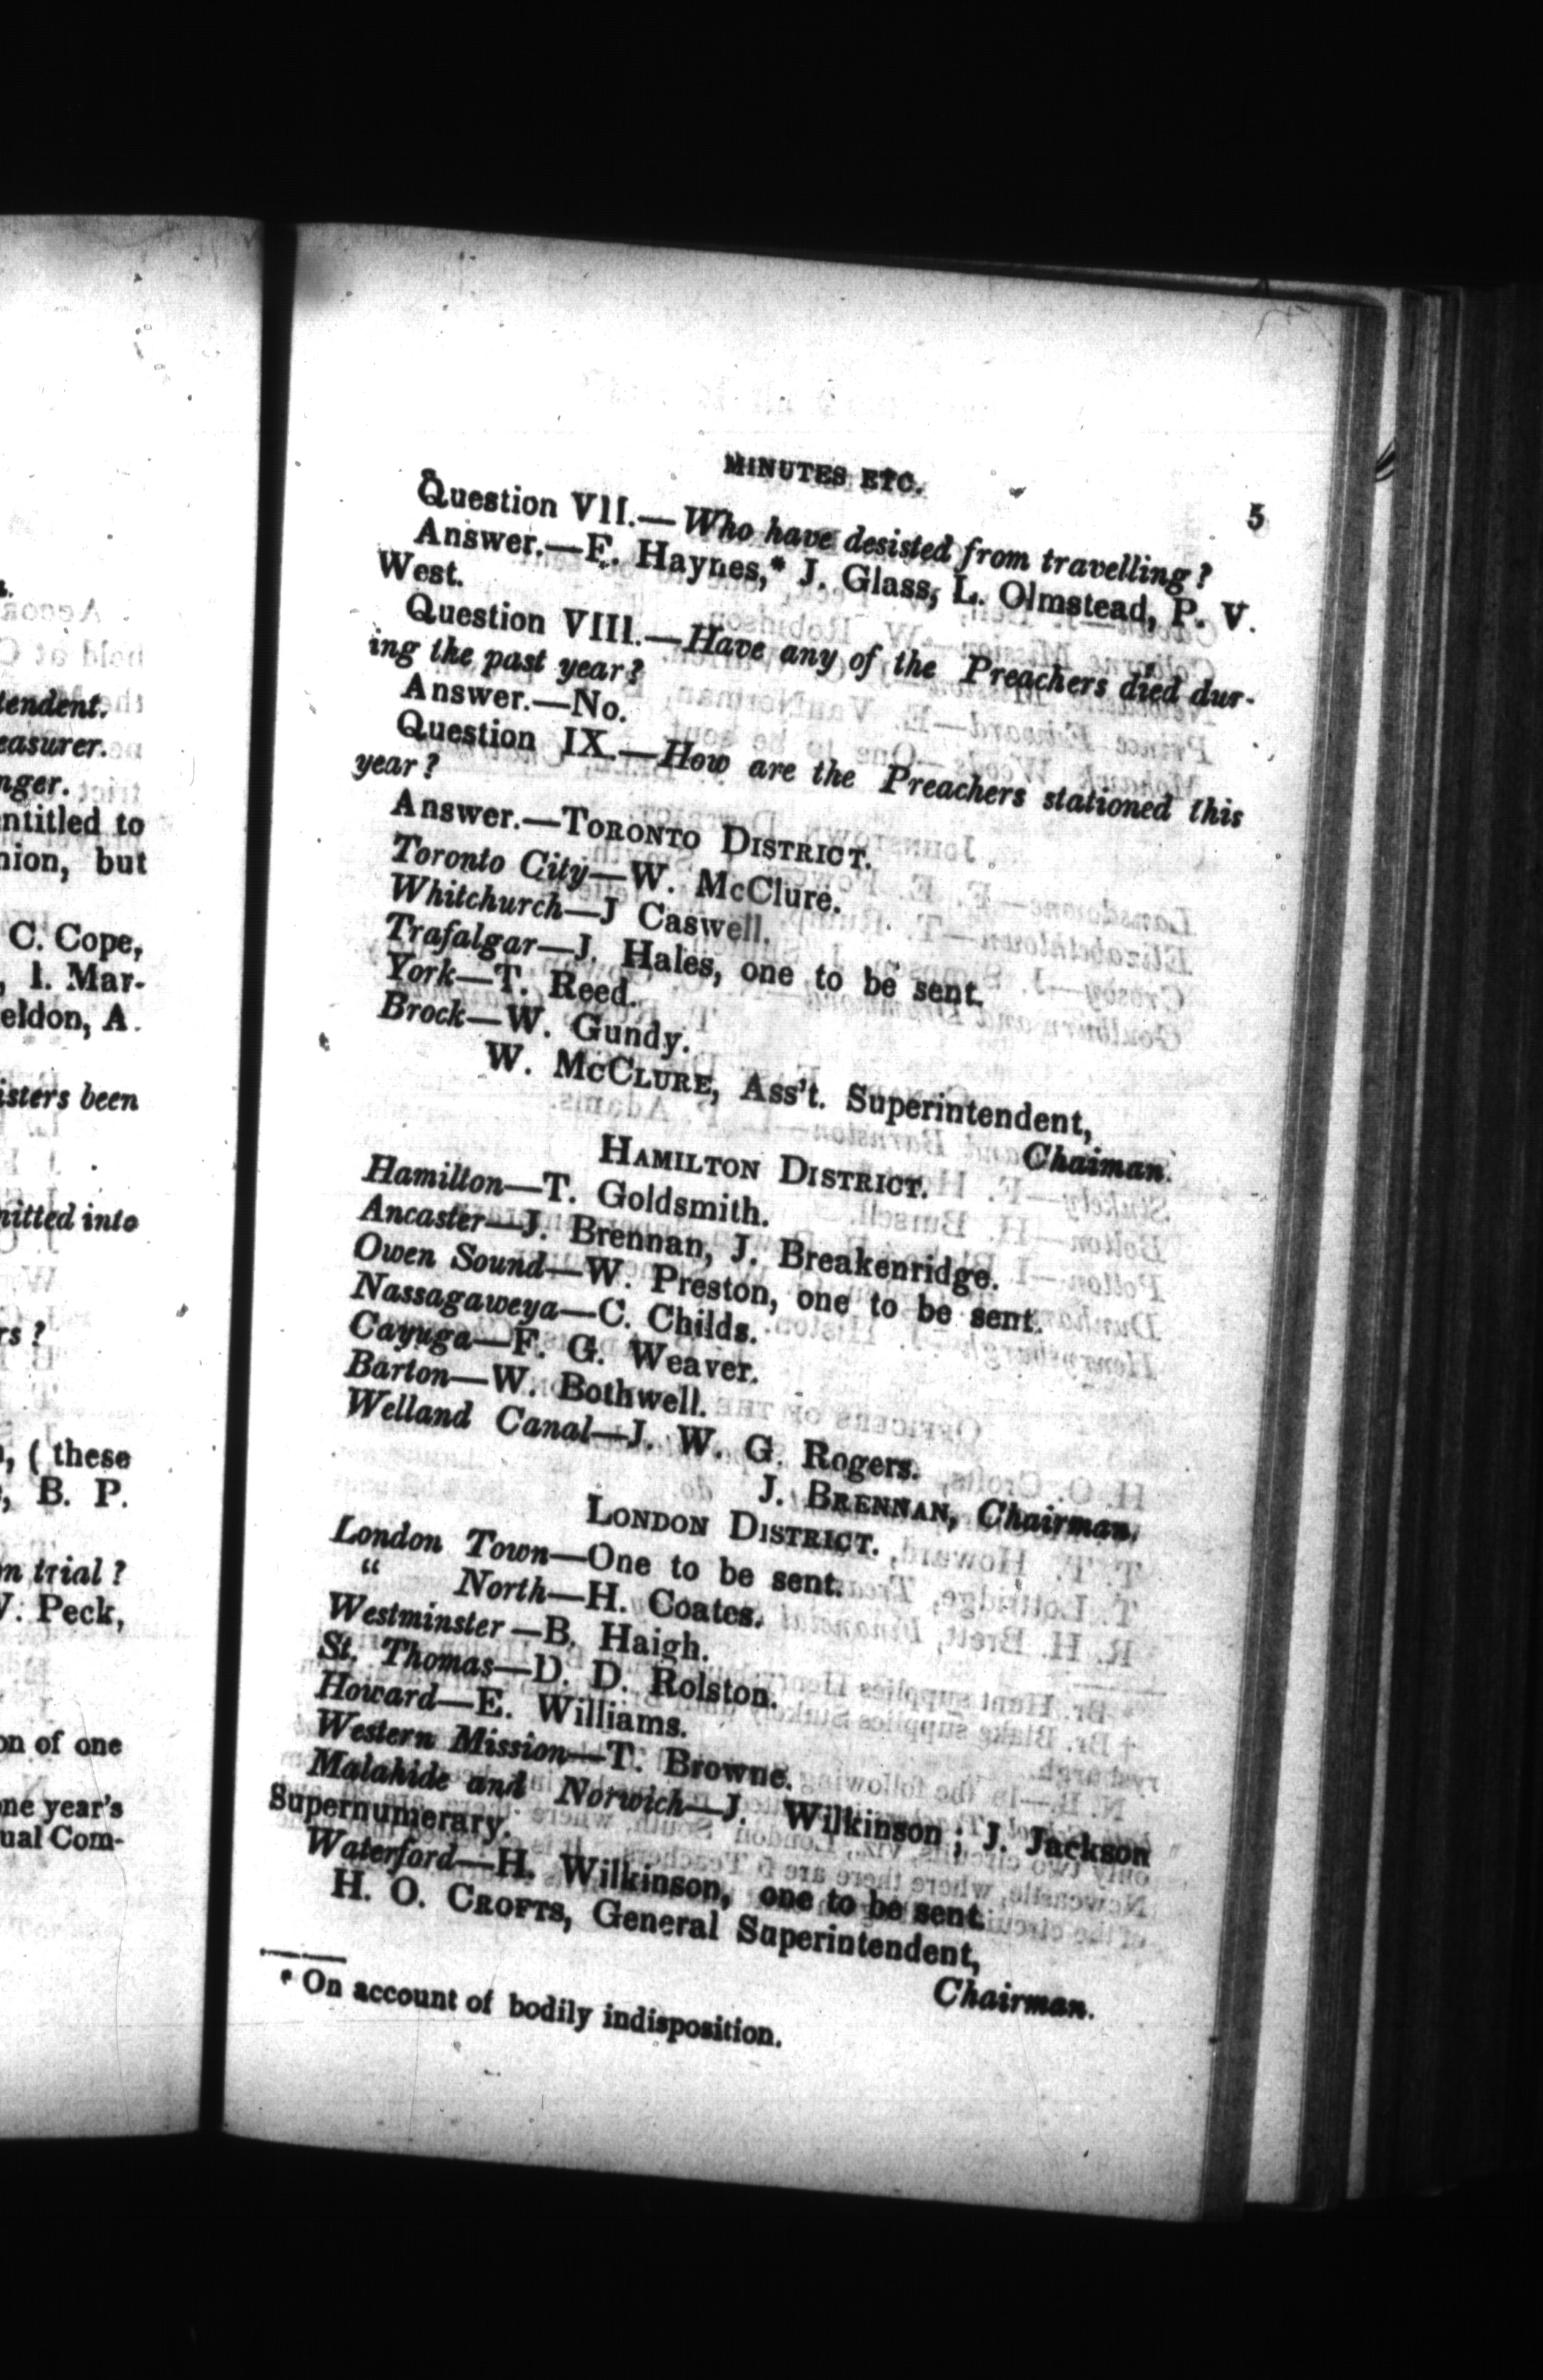 tendent.
easurer.
nger.
ntitled to
nion, but
C. Cope,
, I. Mar-
eldon, A.
isters been
nitted into
rs ?
, ( these
, B. P.
n trial ?
V. Peck,
on of one
ne year's
ual Com-
MINUTES ETC. 5
Question VII.—Who have desisted from travelling?
Answer.—F. Haynes,* J. Glass, L. Olmstead, P. V.
West.
Question VIII.—Have any of the Preachers died dur-
ing the past year?
Answer.—No.
Question IX.—How are the Preachers stationed this
year?
Answer.—TORONTO DISTRICT.
Toronto City—W. McClure.
Whitchurch—J Caswell.
Trafalgar—J. Hales, one to be sent.
York—T. Reed.
Brock—W. Gundy.
W. MCCLURE, Ass't. Superintendent,
Chaiman.
HAMILTON DISTRICT.
Hamilton—T. Goldsmith.
Ancaster—J. Brennan, J. Breakenridge.
Owen Sound—W. Preston, one to be sent.
Nassagaweya—C. Childs.
Cayuga—F. G. Weaver.
Barton—W. Bothwell.
Welland Canal—J. W. G. Rogers.
J. BRENNAN, Chairman.
LONDON DISTRICT.
London Town—One to be sent.
" North—H. Coates.
Westminster—B. Haigh.
St. Thomas—D. D. Rolston.
Howard—E. Williams.
Western Mission—T. Browne.
Malahide and Norwich—J. Wilkinson; J. Jackson
Supernumerary.
Waterford—H. Wilkinson, one to be sent.
H. O. CROFTS, General Superintendent,
Chairman.
* On account of bodily indisposition.